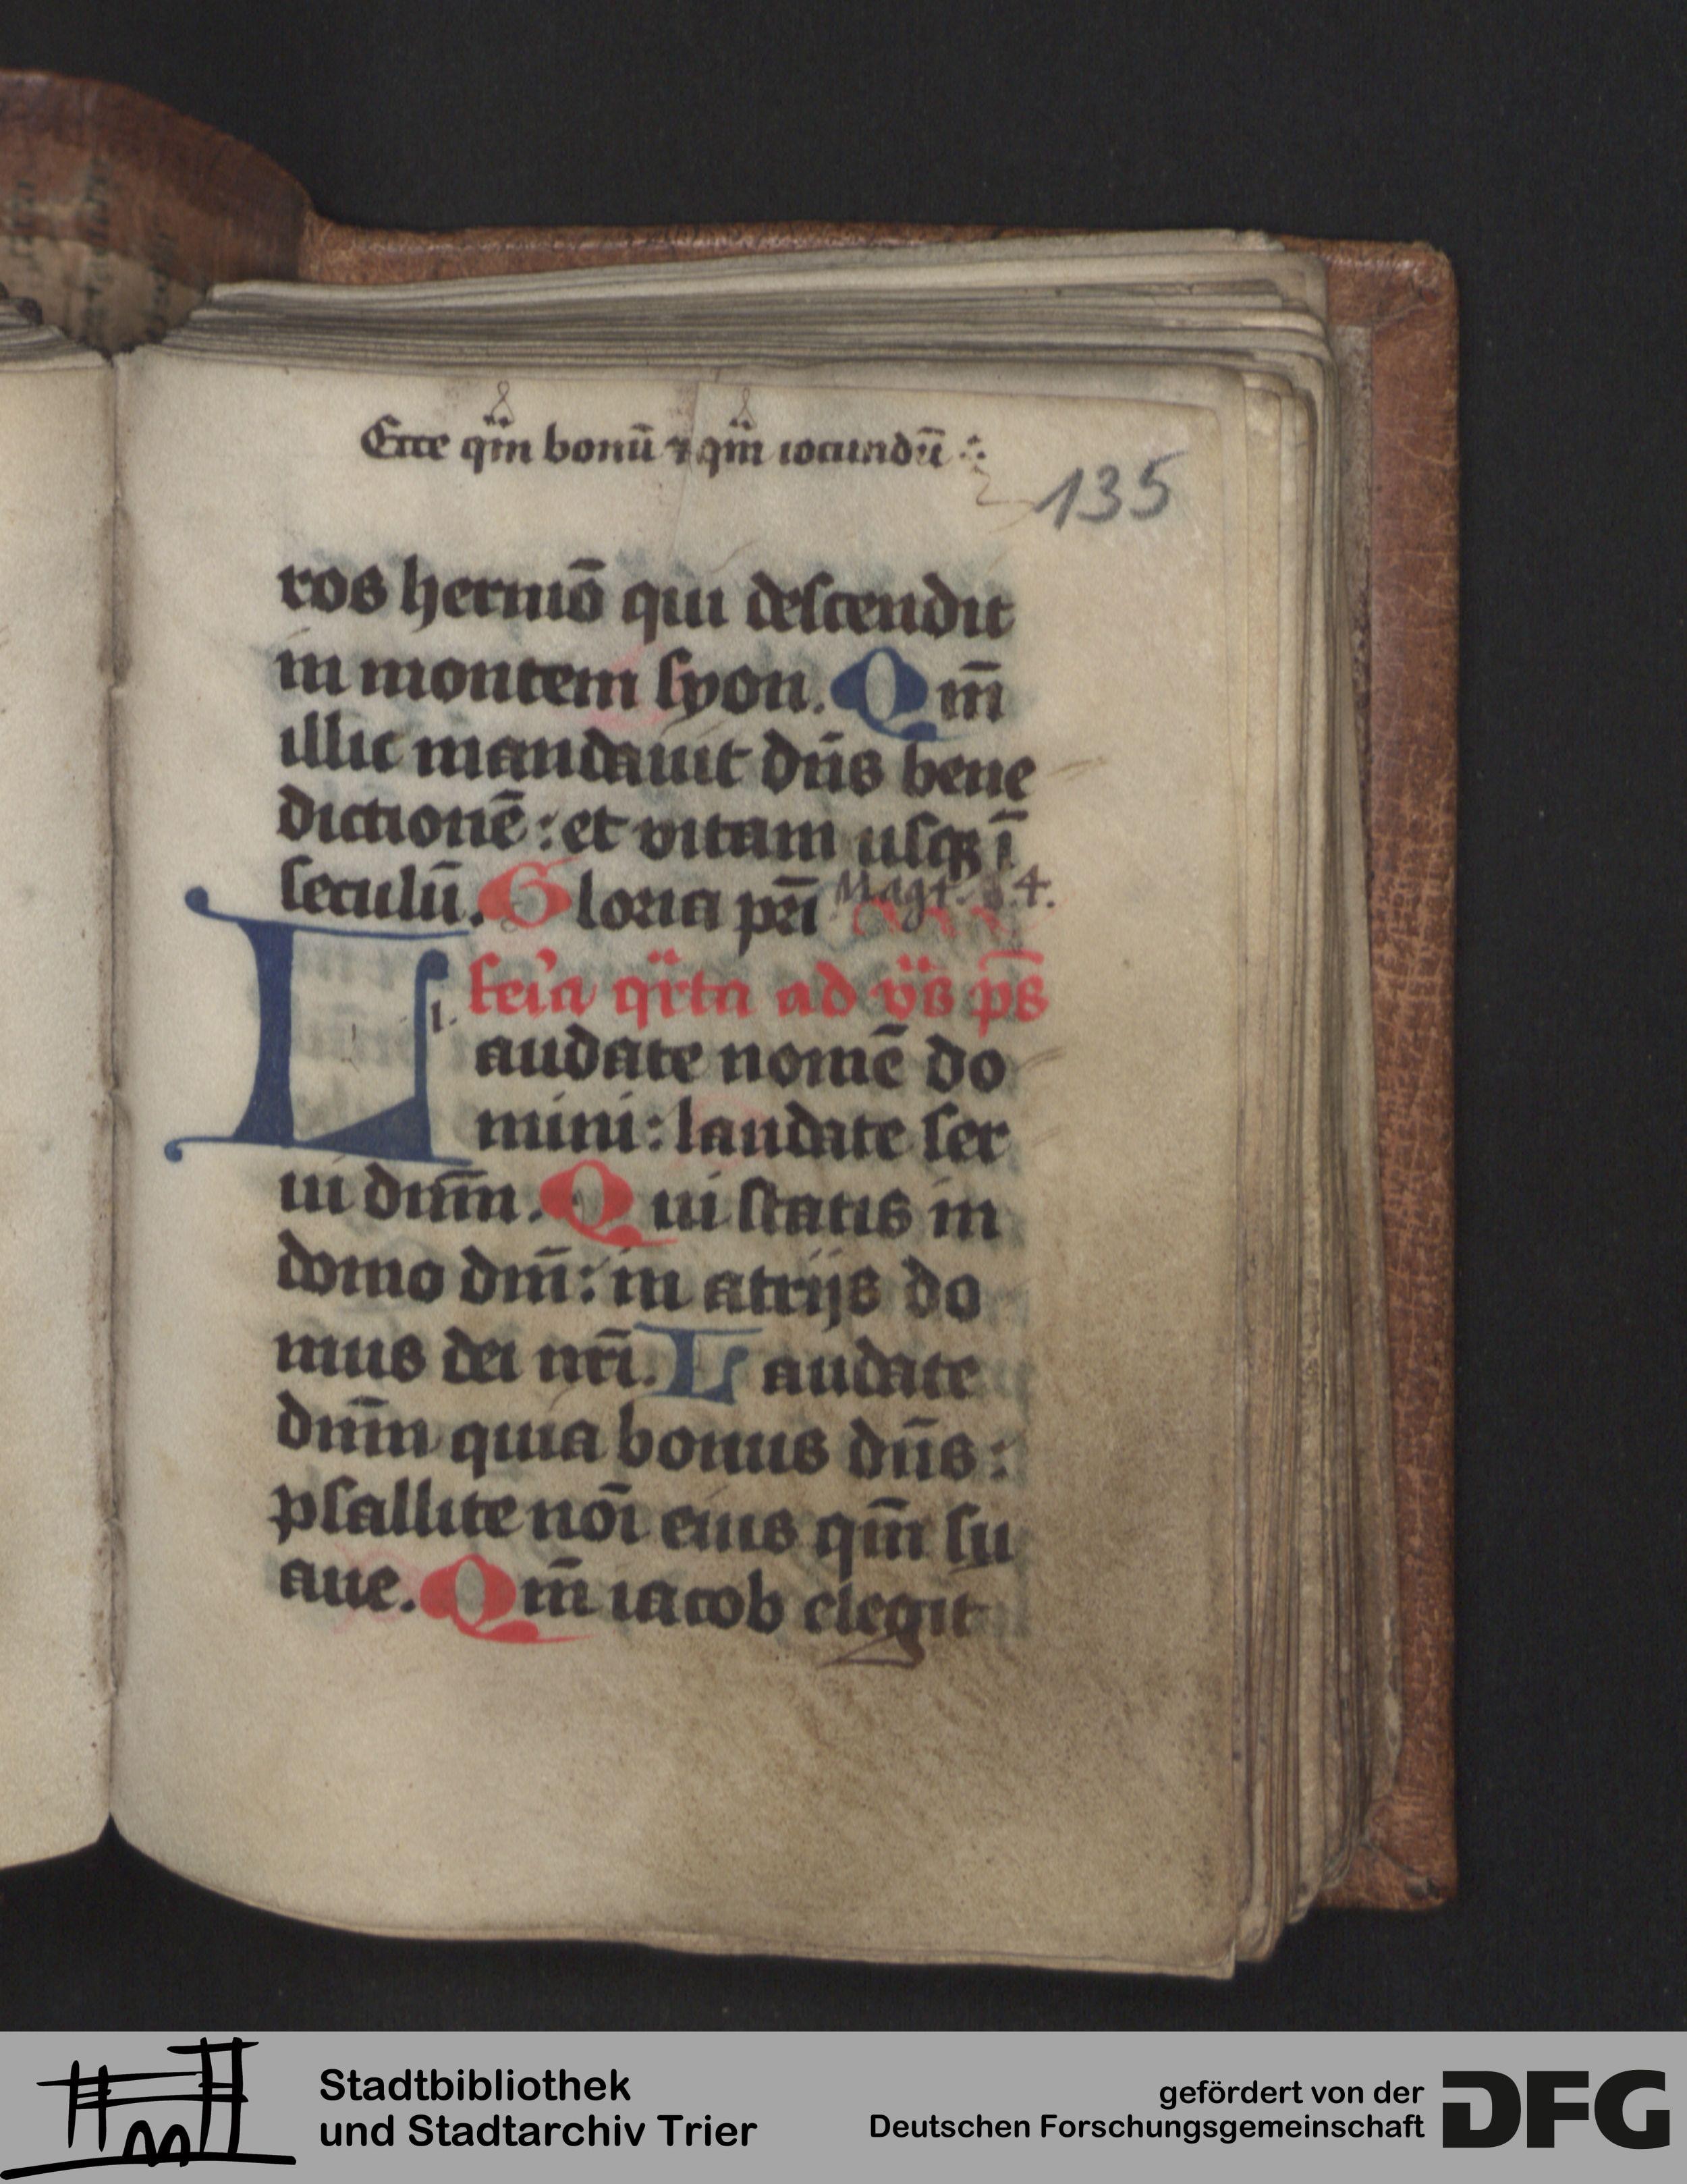 Ecce qm̄ bonū ⁊ qm̄ iocundū
135
ros hermō qui descendit
in montem syon. Qm̄
illic mandauit dn̄s bene
dictionē: et vitam usqꝫ ī
seculū. Gloria pr̄i
Magt. 4.
feia qrta ad vs̄ ps̄
Laudate nomē do
mini: laudate ser
ui dnm̄. Qui statis in
domo dnī: in atrijs do
mus dei nr̄i. Laudate
dnm̄ quia bonus dn̄s:
psallite noī eius qm̄ su
aue. Qm̄ iacob elegit
Stadtbibliothek
und Stadtarchiv Trier
gefördert von der
Deutschen Forschungsgemeinschaft
DFG